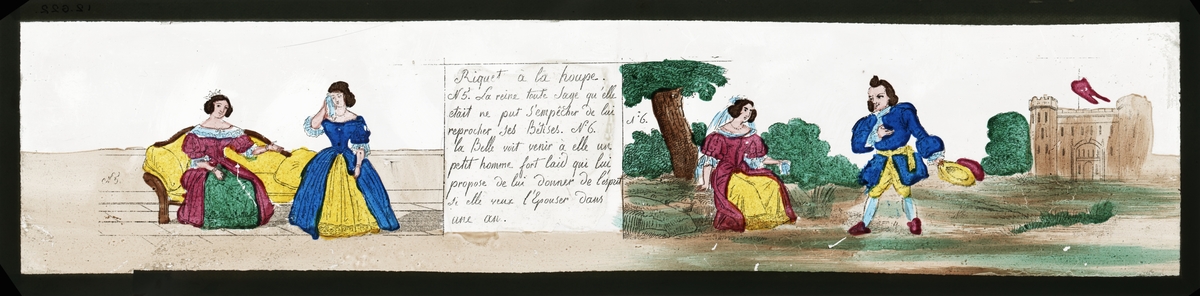 12.622
Riquet a la houpe.
N.5. La reine toute sage qu'elle
etait ne put s'empêcher de lui
reprocher ses Bêtises. N°6.
la Belle voit venir à elle un
petit homme fort laid qui lui
propose de lui donner de l'esprit
si elle veux l'Epouser dans
une an.
N°5.
N°6.